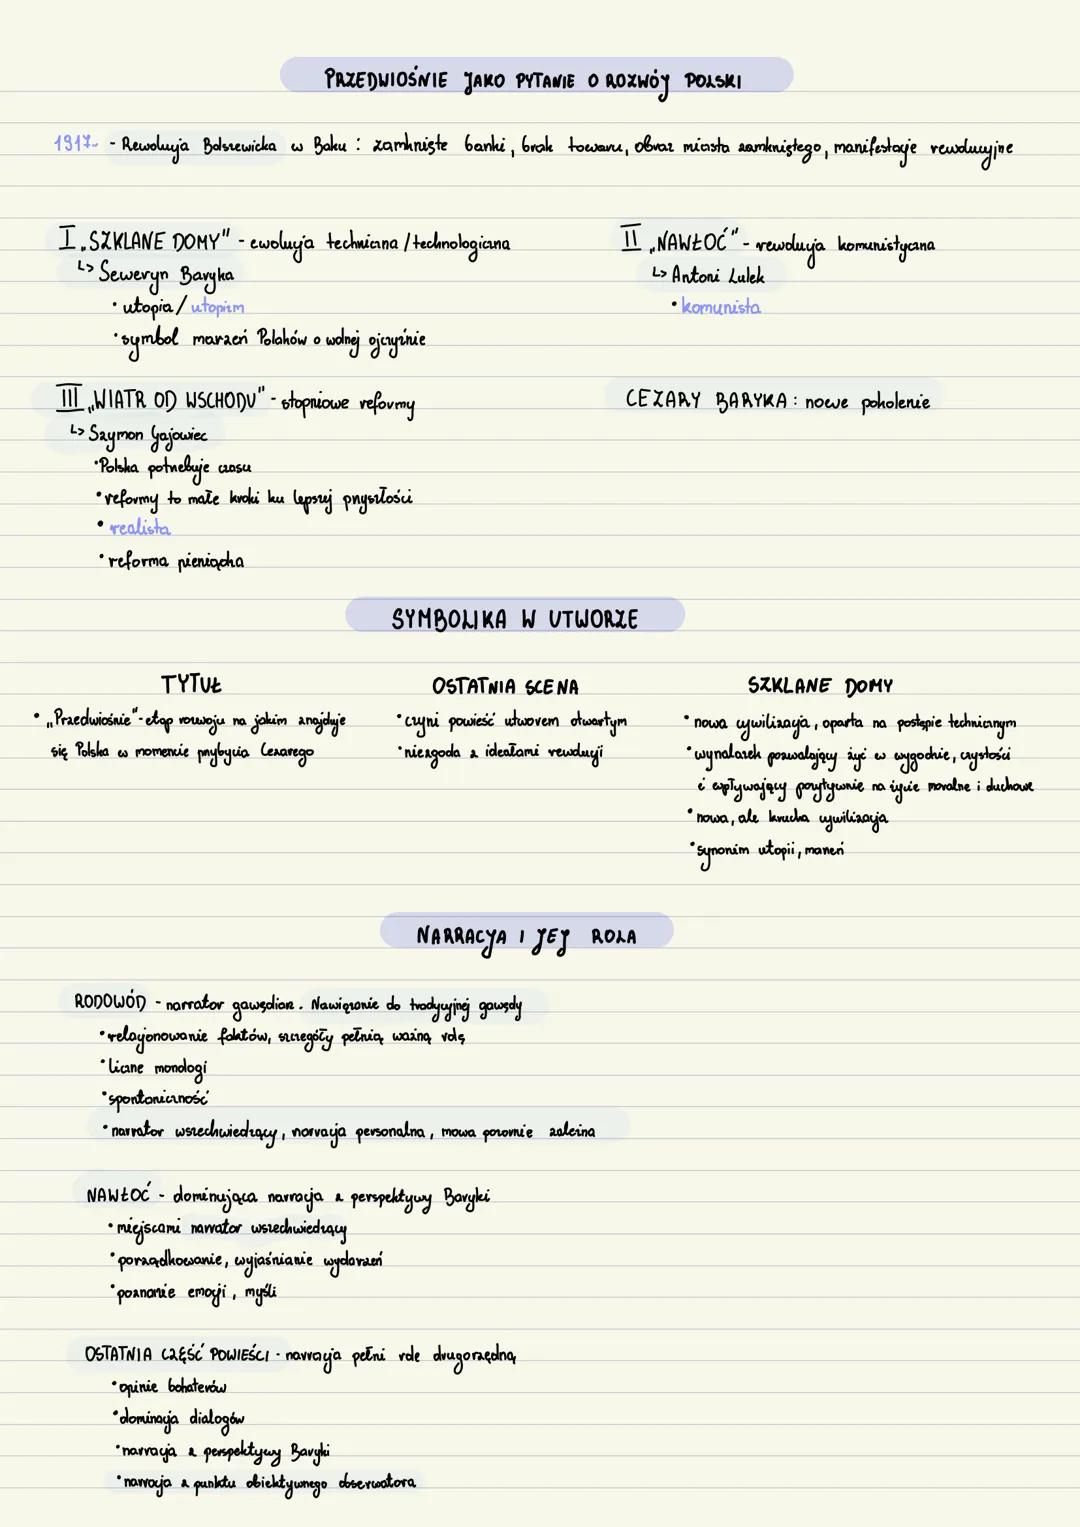 PRZEDWIOŚNIE JAKO PYTANIE O ROZWÓJ POLSKI
1917r. - Rewolucja Bolszewicka w Baku : zamknięte banki, brak towaru, obraz miasta zamkniętego, manifestacje rewolucyjne
I „SZKLANE DOMY" - ewolucja techniczna / technologiczna
↳ Seweryn Baryka
• utopia / utopizm
• symbol marzeń Polaków o wolnej ojczyźnie
II „NAWŁOĆ" - rewolucja komunistyczna
↳ Antoni Lulek
• komunista
III „WIATR OD WSCHODU" - stopniowe reformy
↳ Szymon Gajowiec
• Polska potrzebuje czasu
• reformy to małe kroki ku lepszej przyszłości
• realista
• reforma pieniądza
CEZARY BARYKA : nowe pokolenie
SYMBOLIKA W UTWORZE
TYTUŁ
• „Przedwiośnie" - etap rozwoju na jakim znajduje
się Polska w momencie przybycia Cezarego
OSTATNIA SCENA
• czyni powieść utworem otwartym
• niezgoda z ideałami rewolucji
SZKLANE DOMY
• nowa cywilizacja, oparta na postępie technicznym
• wynalazek pozwalający żyć w wygodnie, czystości
i wpływający pozytywnie na życie moralne i duchowe
• nowa, ale krucha cywilizacja
• synonim utopii, marzeń
NARRACJA I JEJ ROLA
RODOWÓD - narrator gawędziarz. Nawiązanie do tradycyjnej gawędy
• relacjonowanie faktów, szczegóły pełnią ważną rolę
• liczne monologi
• spontaniczność
• narrator wszechwiedzący, narracja personalna, mowa pozornie zależna
NAWŁOĆ - dominująca narracja z perspektywy Baryki
• miejscami narrator wszechwiedzący
• porządkowanie, wyjaśnianie wydarzeń
• poznanie emocji, myśli
OSTATNIA CZĘŚĆ POWIEŚCI - narracja pełni role drugorzędną
• opinie bohaterów
• dominacja dialogów
• narracja z perspektywy Baryki
• narracja z punktu obiektywnego obserwatora